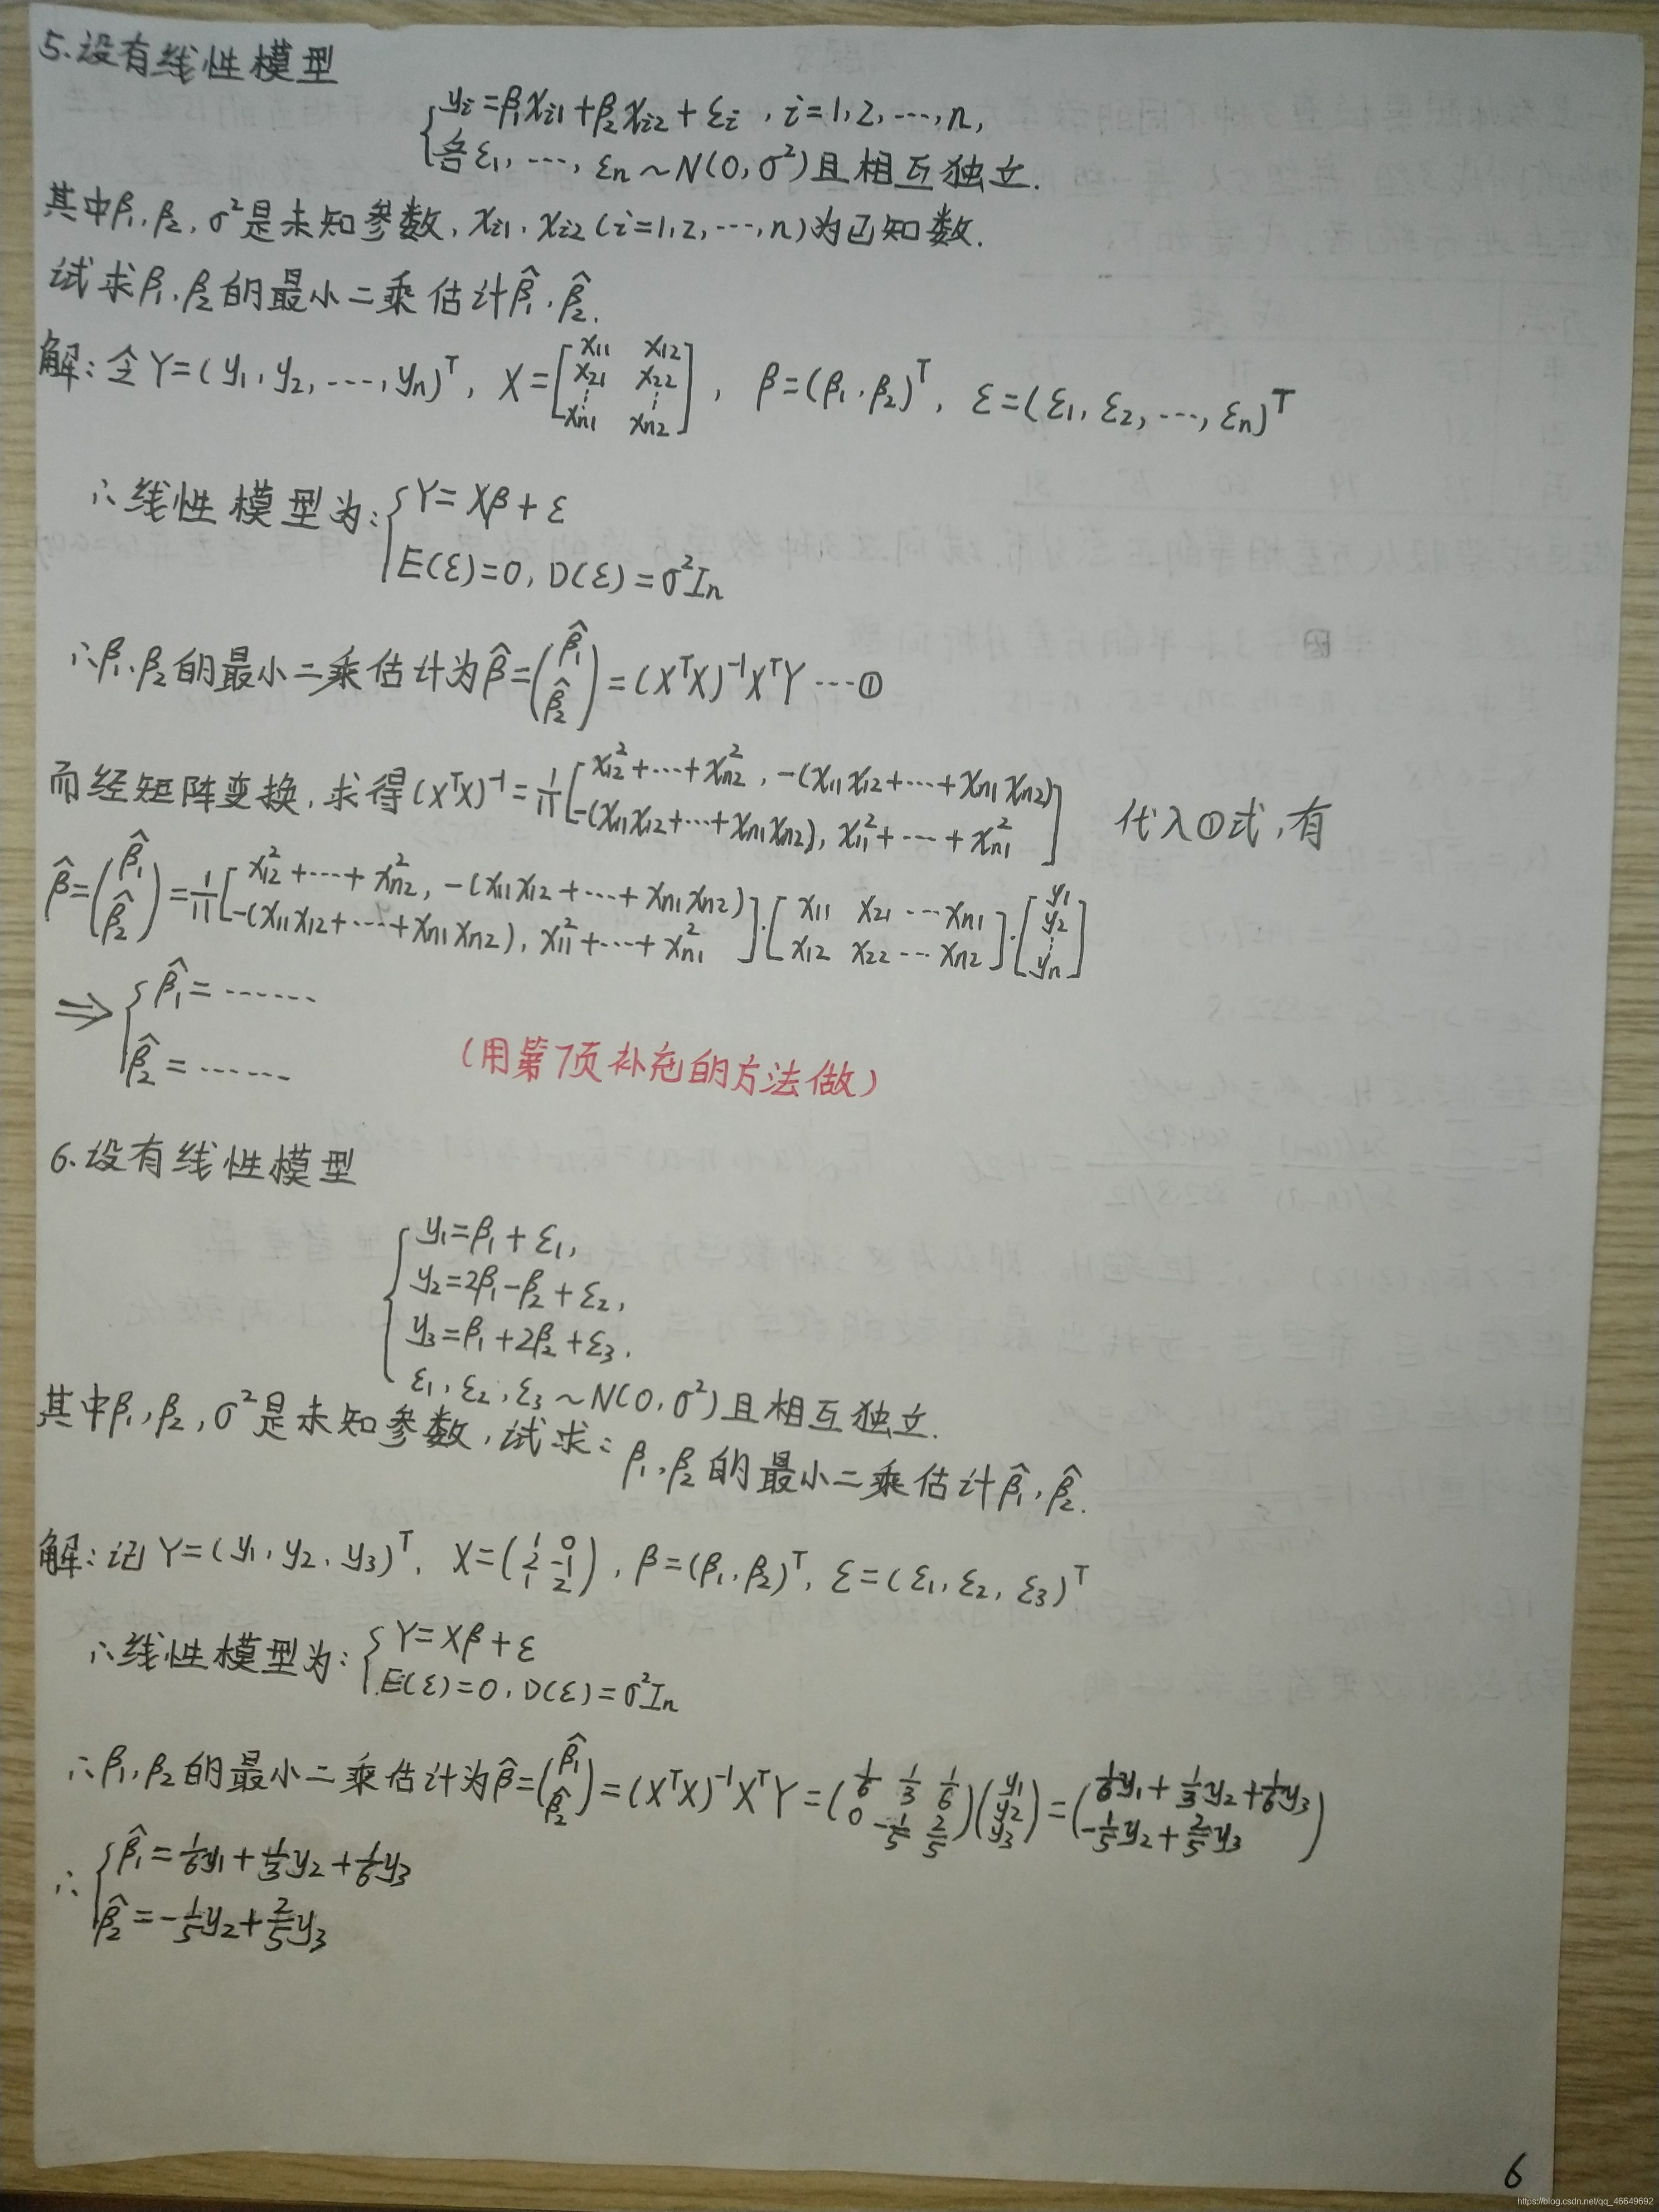 5.设有线性模型
{yᵢ=β₁xᵢ₁+β₂xᵢ₂+εᵢ, i=1,2,…,n,
各ε₁,…,εn~N(0,σ²)且相互独立.
其中β₁,β₂,σ²是未知参数,xᵢ₁,xᵢ₂(i=1,2,…,n)为已知数.
试求β₁,β₂的最小二乘估计β̂₁,β̂₂.
解:令Y=(y₁,y₂,…,yn)ᵀ, X=[x₁₁ x₁₂; x₂₁ x₂₂; ⋮ ⋮; xn₁ xn₂], β=(β₁,β₂)ᵀ, ε=(ε₁,ε₂,…,εn)ᵀ
∴线性模型为:{Y=Xβ+ε
E(ε)=0,D(ε)=σ²In
∴β₁,β₂的最小二乘估计为β̂=(β̂₁; β̂₂)=(XᵀX)⁻¹XᵀY…①
而经矩阵变换,求得(XᵀX)⁻¹=1/11[x₁₂²+…+xn₂², -(x₁₁x₁₂+…+xn₁xn₂); -(x₁₁x₁₂+…+xn₁xn₂), x₁₁²+…+xn₁²] 代入①式,有
β̂=(β̂₁; β̂₂)=1/11[x₁₂²+…+xn₂², -(x₁₁x₁₂+…+xn₁xn₂); -(x₁₁x₁₂+…+xn₁xn₂), x₁₁²+…+xn₁²]·[x₁₁ x₂₁ … xn₁; x₁₂ x₂₂ … xn₂]·[y₁; y₂; ⋮; yn]
⇒{β̂₁=……
β̂₂=……
(用第7页补充的方法做)
6.设有线性模型
{y₁=β₁+ε₁,
y₂=2β₁-β₂+ε₂,
y₃=β₁+2β₂+ε₃,
ε₁,ε₂,ε₃~N(0,σ²)且相互独立.
其中β₁,β₂,σ²是未知参数,试求:β₁,β₂的最小二乘估计β̂₁,β̂₂.
解:记Y=(y₁,y₂,y₃)ᵀ, X=(1 0; 2 -1; 1 2), β=(β₁,β₂)ᵀ, ε=(ε₁,ε₂,ε₃)ᵀ
∴线性模型为:{Y=Xβ+ε
E(ε)=0,D(ε)=σ²In
∴β₁,β₂的最小二乘估计为β̂=(β̂₁; β̂₂)=(XᵀX)⁻¹XᵀY=(1/6 1/3 1/6; 0 -1/5 2/5)(y₁; y₂; y₃)=(1/6y₁+1/3y₂+1/6y₃; -1/5y₂+2/5y₃)
∴{β̂₁=1/6y₁+1/3y₂+1/6y₃
β̂₂=-1/5y₂+2/5y₃
6
https://blog.csdn.net/qq_46649692